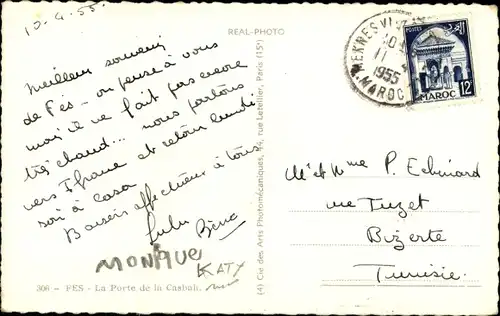 10-4-55.
Meilleur souvenir
de Fès - on pense à vous
mais il ne fait pas encore
très chaud... nous partons
vers Ifrane et retour lundi
soir à Casa
Baisers affectueux à tous
Lulu
MONIQUE
KATY
306 - FES - La Porte de la Casbah.
REAL-PHOTO
(4) Cie des Arts Photomécaniques, 44, rue Letellier, Paris (15e)
MEKNES
11
1955
MAROC
POSTES
MAROC
12F
Mr et Mme P.
rue
Bizerte
Tunisie.